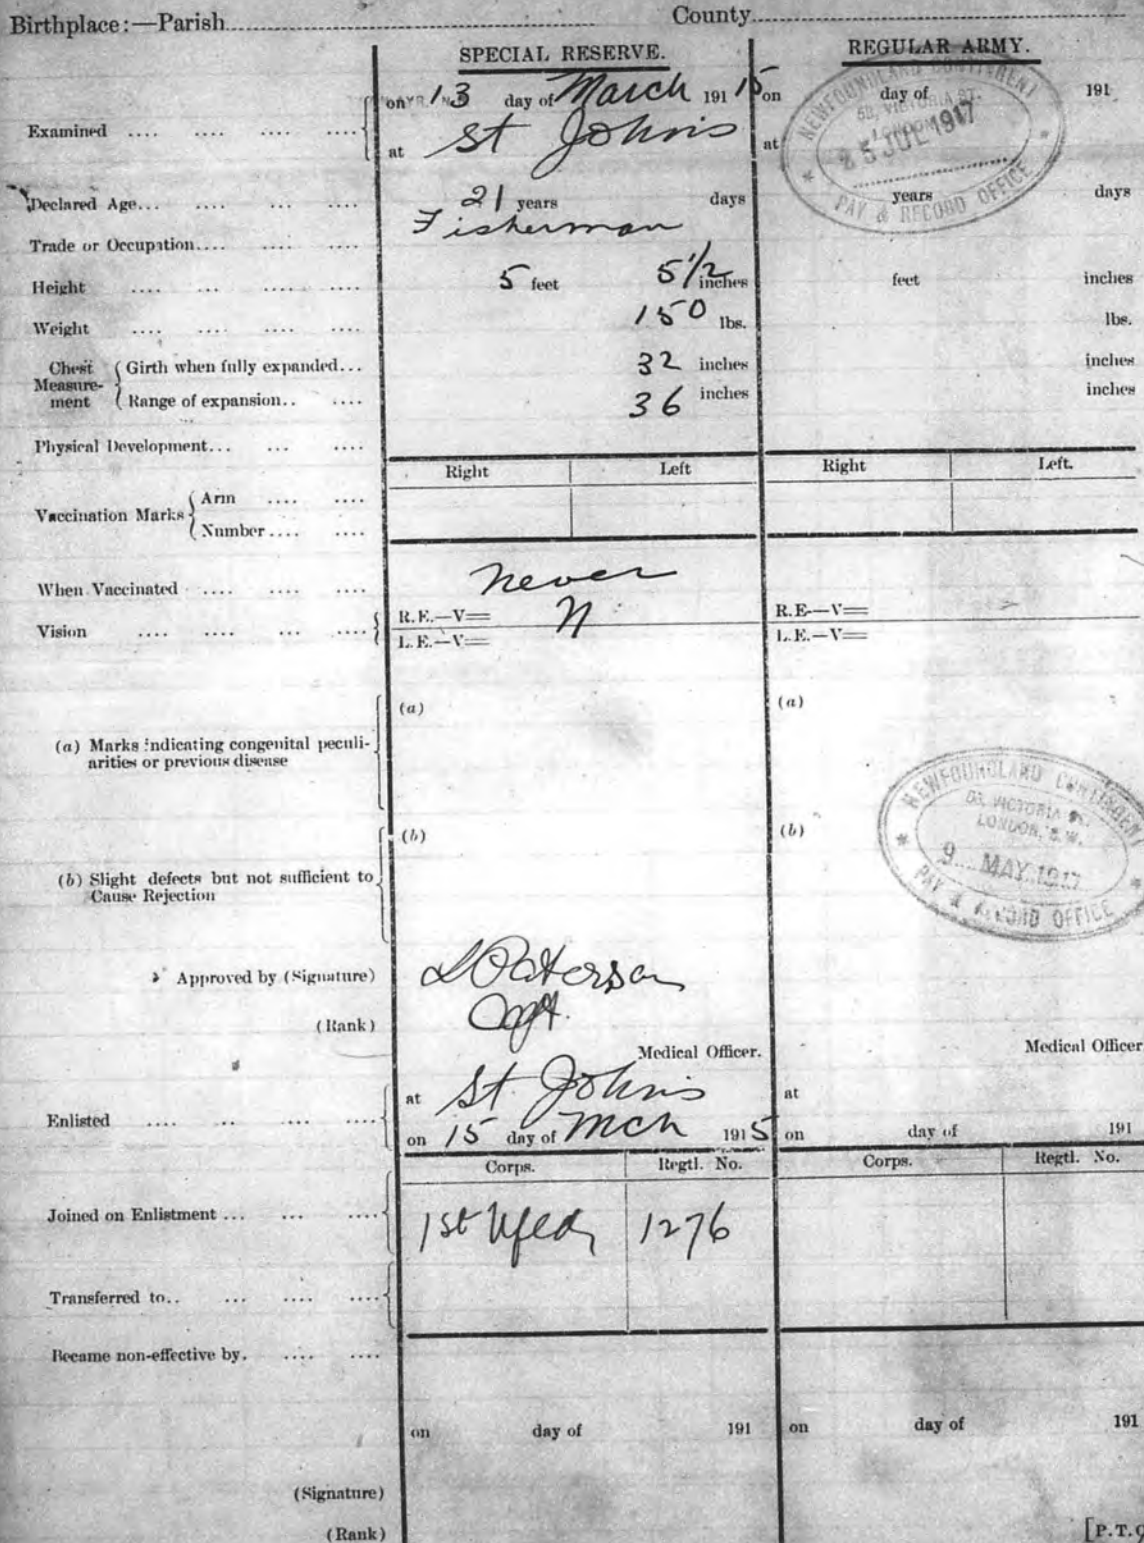 Birthplace:—Parish............ County............
SPECIAL RESERVE. REGULAR ARMY.
Examined .... .... .... .... on 13 day of March 191 15 on day of 191
at St John's at
NEWFOUNDLAND CONTINGENT
58, VICTORIA ST.
LONDON
25 JUL 1917
PAY & RECORD OFFICE
Declared Age... .... .... .... 21 years days years days
Trade or Occupation.... .... .... Fisherman
Height .... ... .... .... 5 feet 5 1/2 inches feet inches
Weight .... .... .... .... 150 lbs. lbs.
Chest Measure-ment { Girth when fully expanded... 32 inches inches
Range of expansion.. .... 36 inches inches
Physical Development... ... ....
Right Left Right Left.
Vaccination Marks { Arm .... ....
Number.... ....
When Vaccinated .... .... .... never
Vision .... .... ... .... R.E.—V= N R.E—V=
L.E.—V= L.E.—V=
(a) (a)
(a) Marks indicating congenital peculi-
arities or previous disease
NEWFOUNDLAND CONTINGENT
58, VICTORIA ST.
LONDON, S.W.
9 MAY 1917
PAY & RECORD OFFICE
(b) (b)
(b) Slight defects but not sufficient to
Cause Rejection
Approved by (Signature) L Paterson
(Rank) Capt.
Medical Officer. Medical Officer
Enlisted .... .. .... .... at St. John's at
on 15 day of Mch 1915 on day of 191
Corps. Regtl. No. Corps. Regtl. No.
Joined on Enlistment ... ... .... 1st Nfld 1276
Transferred to.. ... .... ....
Became non-effective by. .... ....
on day of 191 on day of 191
(Signature)
(Rank)
[P.T.O